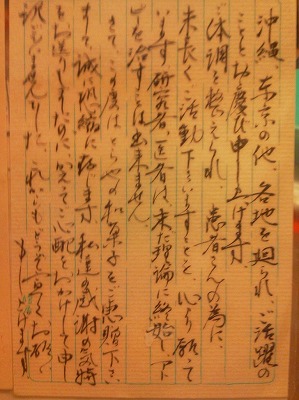 沖縄、東京の他、各地を廻られ、ご活躍の
ことと、お慶び申し上げます。
ご体調を整えられ、患者さんの為に、
末長く、ご活動下さいますことを心より願って
います。研究者、医者は、未だ理論に終始し、アト
ピーを治すことは出来ません。
さて、この度はとらやの和菓子をご恵贈下さい
まして、誠に恐縮に存じます。私達の感謝の気持
をお送りしましたのに、却ってご心配をおかけして申
訳ございませんでした。これからもどうぞ宜しくお願い
もうし上げます